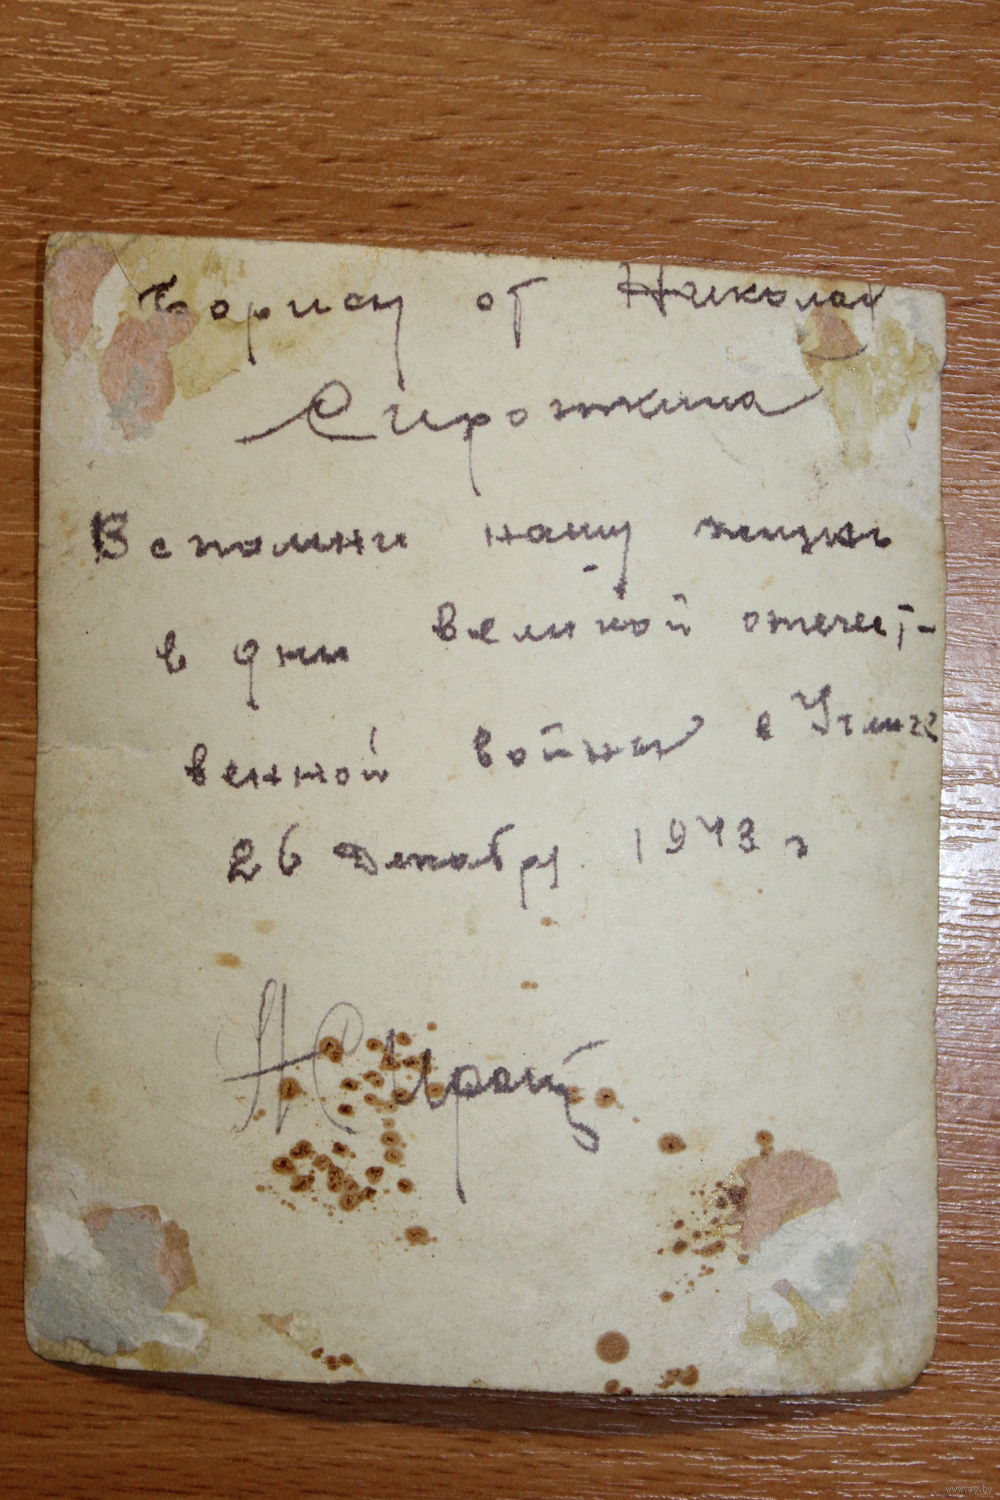 Борису от Николая
Сироткина
Вспомни нашу жизнь
в дни великой отечест-
венной войны в Угличе
26 Декабря 1943 г
www.ay.by